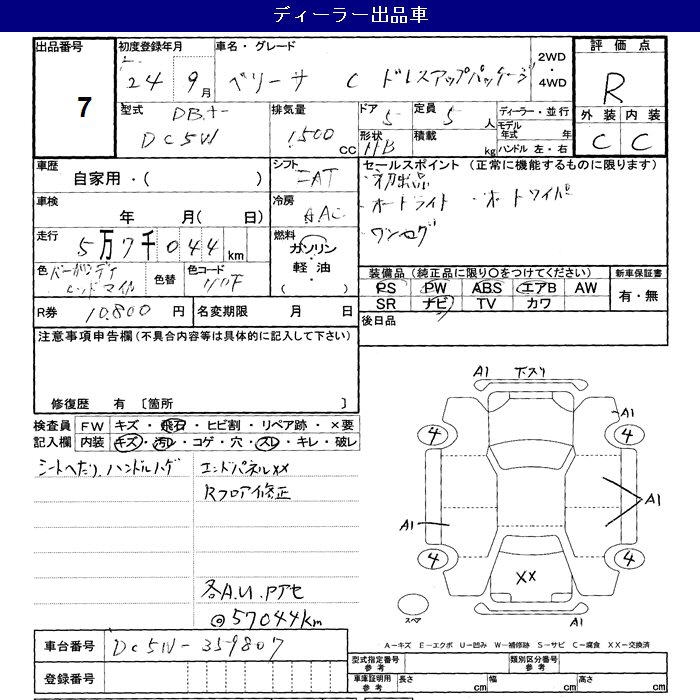 ディーラー出品車
出品番号
7
初度登録年月
24 9月
車名・グレード
ベリーサ C ドレスアップパッケージ
2WD
・
4WD
評価点
R
外装 内装
C C
型式
DBA-
DC5W
排気量
1500
CC
ドア
5
形状
HB
定員
5
人
積載
kg
ディーラー・並行
モデル
年式 年
ハンドル 左・右
車歴
自家用・( )
シフト
車検
年 月( 日)
冷房
AAC
走行
5万7千044km
燃料
ガソリン
軽油
・
( )
色 バーガンディ
レッドマイカ
色替
色コード
R券 10.800 円
名変期限 月 日
セールスポイント (正常に機能するものに限ります)
・初出品
・オートライト ・オートワイパ
・ワンセグ
装備品(純正品に限り○をつけてください)
PS PW ABS エアB AW
SR ナビ TV カワ
新車保証書
有・無
後日品
注意事項申告欄(不具合内容等は具体的に記入して下さい)
修復歴 有 〔箇所 〕
検査員
記入欄
FW キズ・飛石・ヒビ割・リペア跡・×要
内装 キズ・汚レ・コゲ・穴・スレ・キレ・破レ
シートヘたり、ハンドルハゲ
エンドパネルXX
Rフロア修正
各A.U.Pアセ
@57044km
A1 下スリ
A1
4 4
A1
A1
4 4
XX
スペア
A1
A－キズ E－エクボ U－凹み W－補修跡 S－サビ C－腐食 XX－交換済
車台番号 DC5W-359807
登録番号
型式指定番号
参考
類別区分番号
参考
車庫証明用
参考
長さ cm 幅 cm 高さ cm